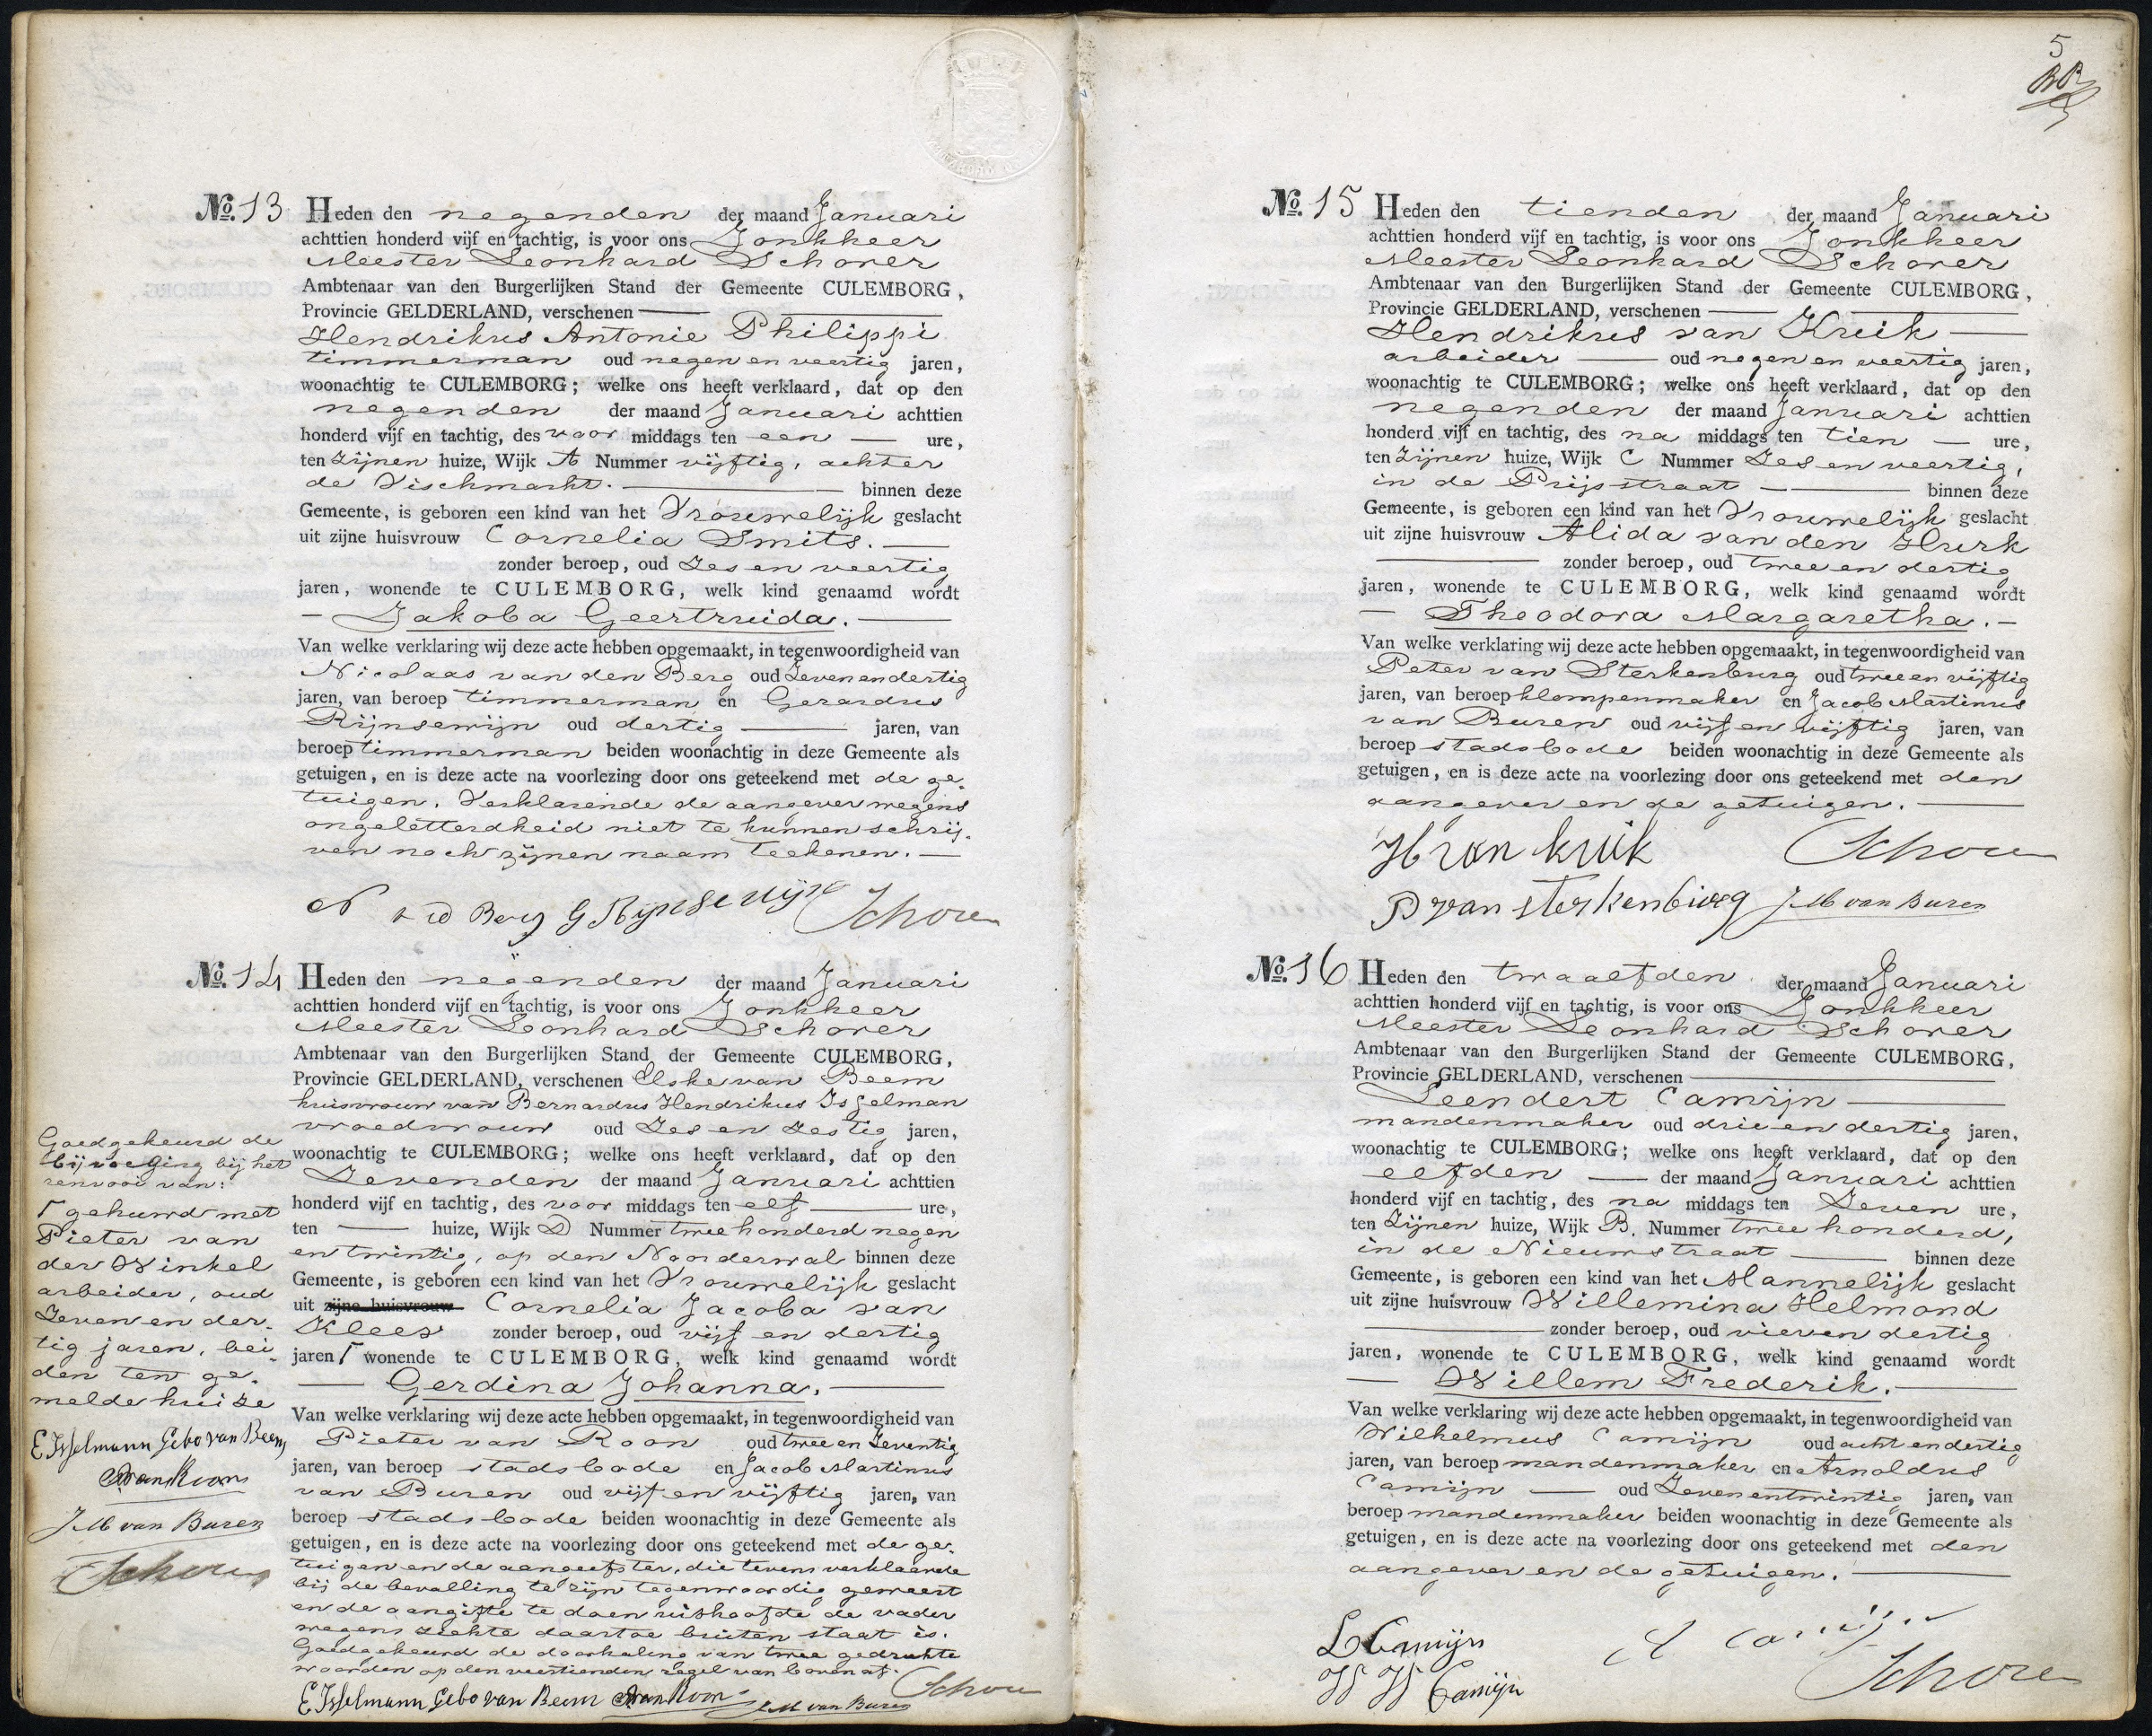 No. 13 Heden den negenden der maand Januari
achttien honderd vijf en tachtig, is voor ons Jonkheer
Meester Leonhard Schorer
Ambtenaar van den Burgerlijken Stand der Gemeente CULEMBORG,
Provincie GELDERLAND, verschenen
Hendrikus Antonie Philippi
timmerman oud negen en veertig jaren,
woonachtig te CULEMBORG; welke ons heeft verklaard, dat op den
negenden der maand Januari achttien
honderd vijf en tachtig, des voor middags ten een — ure,
ten zijnen huize, Wijk A Nummer vijftig, achter
de Vischmarkt. — binnen deze
Gemeente, is geboren een kind van het Vrouwelijk geslacht
uit zijne huisvrouw Cornelia Smits. —
zonder beroep, oud zes en veertig
jaren, wonende te CULEMBORG, welk kind genaamd wordt
— Jakoba Geertruida. —
Van welke verklaring wij deze acte hebben opgemaakt, in tegenwoordigheid van
Nicolaas van den Berg oud zeven en dertig
jaren, van beroep timmerman en Gerardus
Rijnsewijn oud dertig — jaren, van
beroep timmerman beiden woonachtig in deze Gemeente als
getuigen, en is deze acte na voorlezing door ons geteekend met de ge-
tuigen. Verklarende de aangever wegens
ongeletterdheid niet te kunnen schrij-
ven noch zijnen naam teekenen. —
N v d Berg G Rijnsewijn Schorer
No. 14 Heden den negenden der maand Januari
achttien honderd vijf en tachtig, is voor ons Jonkheer
Meester Leonhard Schorer
Ambtenaar van den Burgerlijken Stand der Gemeente CULEMBORG,
Provincie GELDERLAND, verschenen Elske van Beem
huisvrouw van Bernardus Hendrikus Isselman
vroedvrouw oud zes en zestig jaren,
woonachtig te CULEMBORG; welke ons heeft verklaard, dat op den
zevenden der maand Januari achttien
honderd vijf en tachtig, des voor middags ten elf — ure,
ten — huize, Wijk D Nummer twee honderd negen
en twintig, op den Noorderwal binnen deze
Gemeente, is geboren een kind van het Vrouwelijk geslacht
uit zijne huisvrouw Cornelia Jacoba van
Kleef zonder beroep, oud vijf en dertig
jaren Γ wonende te CULEMBORG, welk kind genaamd wordt
— Gerdina Johanna. —
Van welke verklaring wij deze acte hebben opgemaakt, in tegenwoordigheid van
Pieter van Roon oud twee en zeventig
jaren, van beroep stadsbode en Jacob Martinus
van Buren oud vijf en vijftig jaren, van
beroep stadsbode beiden woonachtig in deze Gemeente als
getuigen, en is deze acte na voorlezing door ons geteekend met de ge-
tuigen en de aangeefster, die tevens verklaarde
bij de bevalling te zijn tegenwoordig geweest
en de aangifte te doen uithoofde de vader
wegens ziekte daartoe buiten staat is.
Goedgekeurd de doorhaling van twee gedrukte
woorden op den veertienden regel van boven af.
E Isselmann Gebo van Beem P van Roon J M van Buren Schorer
Goedgekeurd de
bijvoeging bij het
renvooi van:
Γ gehuwd met
Pieter van
der Winkel
arbeider, oud
zeven en der-
tig jaren, bei-
den ten ge-
melde huize
E Isselmann Gebo van Beem
P van Roon
J M van Buren
Schorer
5
No. 15 Heden den tienden der maand Januari
achttien honderd vijf en tachtig, is voor ons Jonkheer
Meester Leonhard Schorer
Ambtenaar van den Burgerlijken Stand der Gemeente CULEMBORG,
Provincie GELDERLAND, verschenen —
Hendrikus van Kruik —
arbeider — oud negen en veertig jaren,
woonachtig te CULEMBORG; welke ons heeft verklaard, dat op den
negenden der maand Januari achttien
honderd vijf en tachtig, des na middags ten tien — ure,
ten zijnen huize, Wijk C Nummer zes en veertig,
in de Prijsstraat — binnen deze
Gemeente, is geboren een kind van het Vrouwelijk geslacht
uit zijne huisvrouw Alida van den Hurk
— zonder beroep, oud twee en dertig
jaren, wonende te CULEMBORG, welk kind genaamd wordt
— Theodora Margaretha. —
Van welke verklaring wij deze acte hebben opgemaakt, in tegenwoordigheid van
Peter van Sterkenburg oud twee en vijftig
jaren, van beroep klompenmaker en Jacob Martinus
van Buren oud vijf en vijftig jaren, van
beroep stadsbode beiden woonachtig in deze Gemeente als
getuigen, en is deze acte na voorlezing door ons geteekend met den
aangever en de getuigen. —
H van kruik Schorer
P van sterkenburg J M van Buren
No. 16 Heden den twaalfden der maand Januari
achttien honderd vijf en tachtig, is voor ons Jonkheer
Meester Leonhard Schorer
Ambtenaar van den Burgerlijken Stand der Gemeente CULEMBORG,
Provincie GELDERLAND, verschenen —
Leendert Camijn —
mandenmaker oud drie en dertig jaren,
woonachtig te CULEMBORG; welke ons heeft verklaard, dat op den
elfden — der maand Januari achttien
honderd vijf en tachtig, des na middags ten zeven ure,
ten zijnen huize, Wijk B. Nummer twee honderd,
in de Nieuwstraat — binnen deze
Gemeente, is geboren een kind van het Mannelijk geslacht
uit zijne huisvrouw Willemina Helmond
— zonder beroep, oud vier en dertig
jaren, wonende te CULEMBORG, welk kind genaamd wordt
— Willem Frederik. —
Van welke verklaring wij deze acte hebben opgemaakt, in tegenwoordigheid van
Wilhelmus Camijn oud acht en dertig
jaren, van beroep mandenmaker en Arnoldus
Camijn — oud zeven en twintig jaren, van
beroep mandenmaker beiden woonachtig in deze Gemeente als
getuigen, en is deze acte na voorlezing door ons geteekend met den
aangever en de getuigen. —
L Camijn A Camijn
W W Camijn Schorer